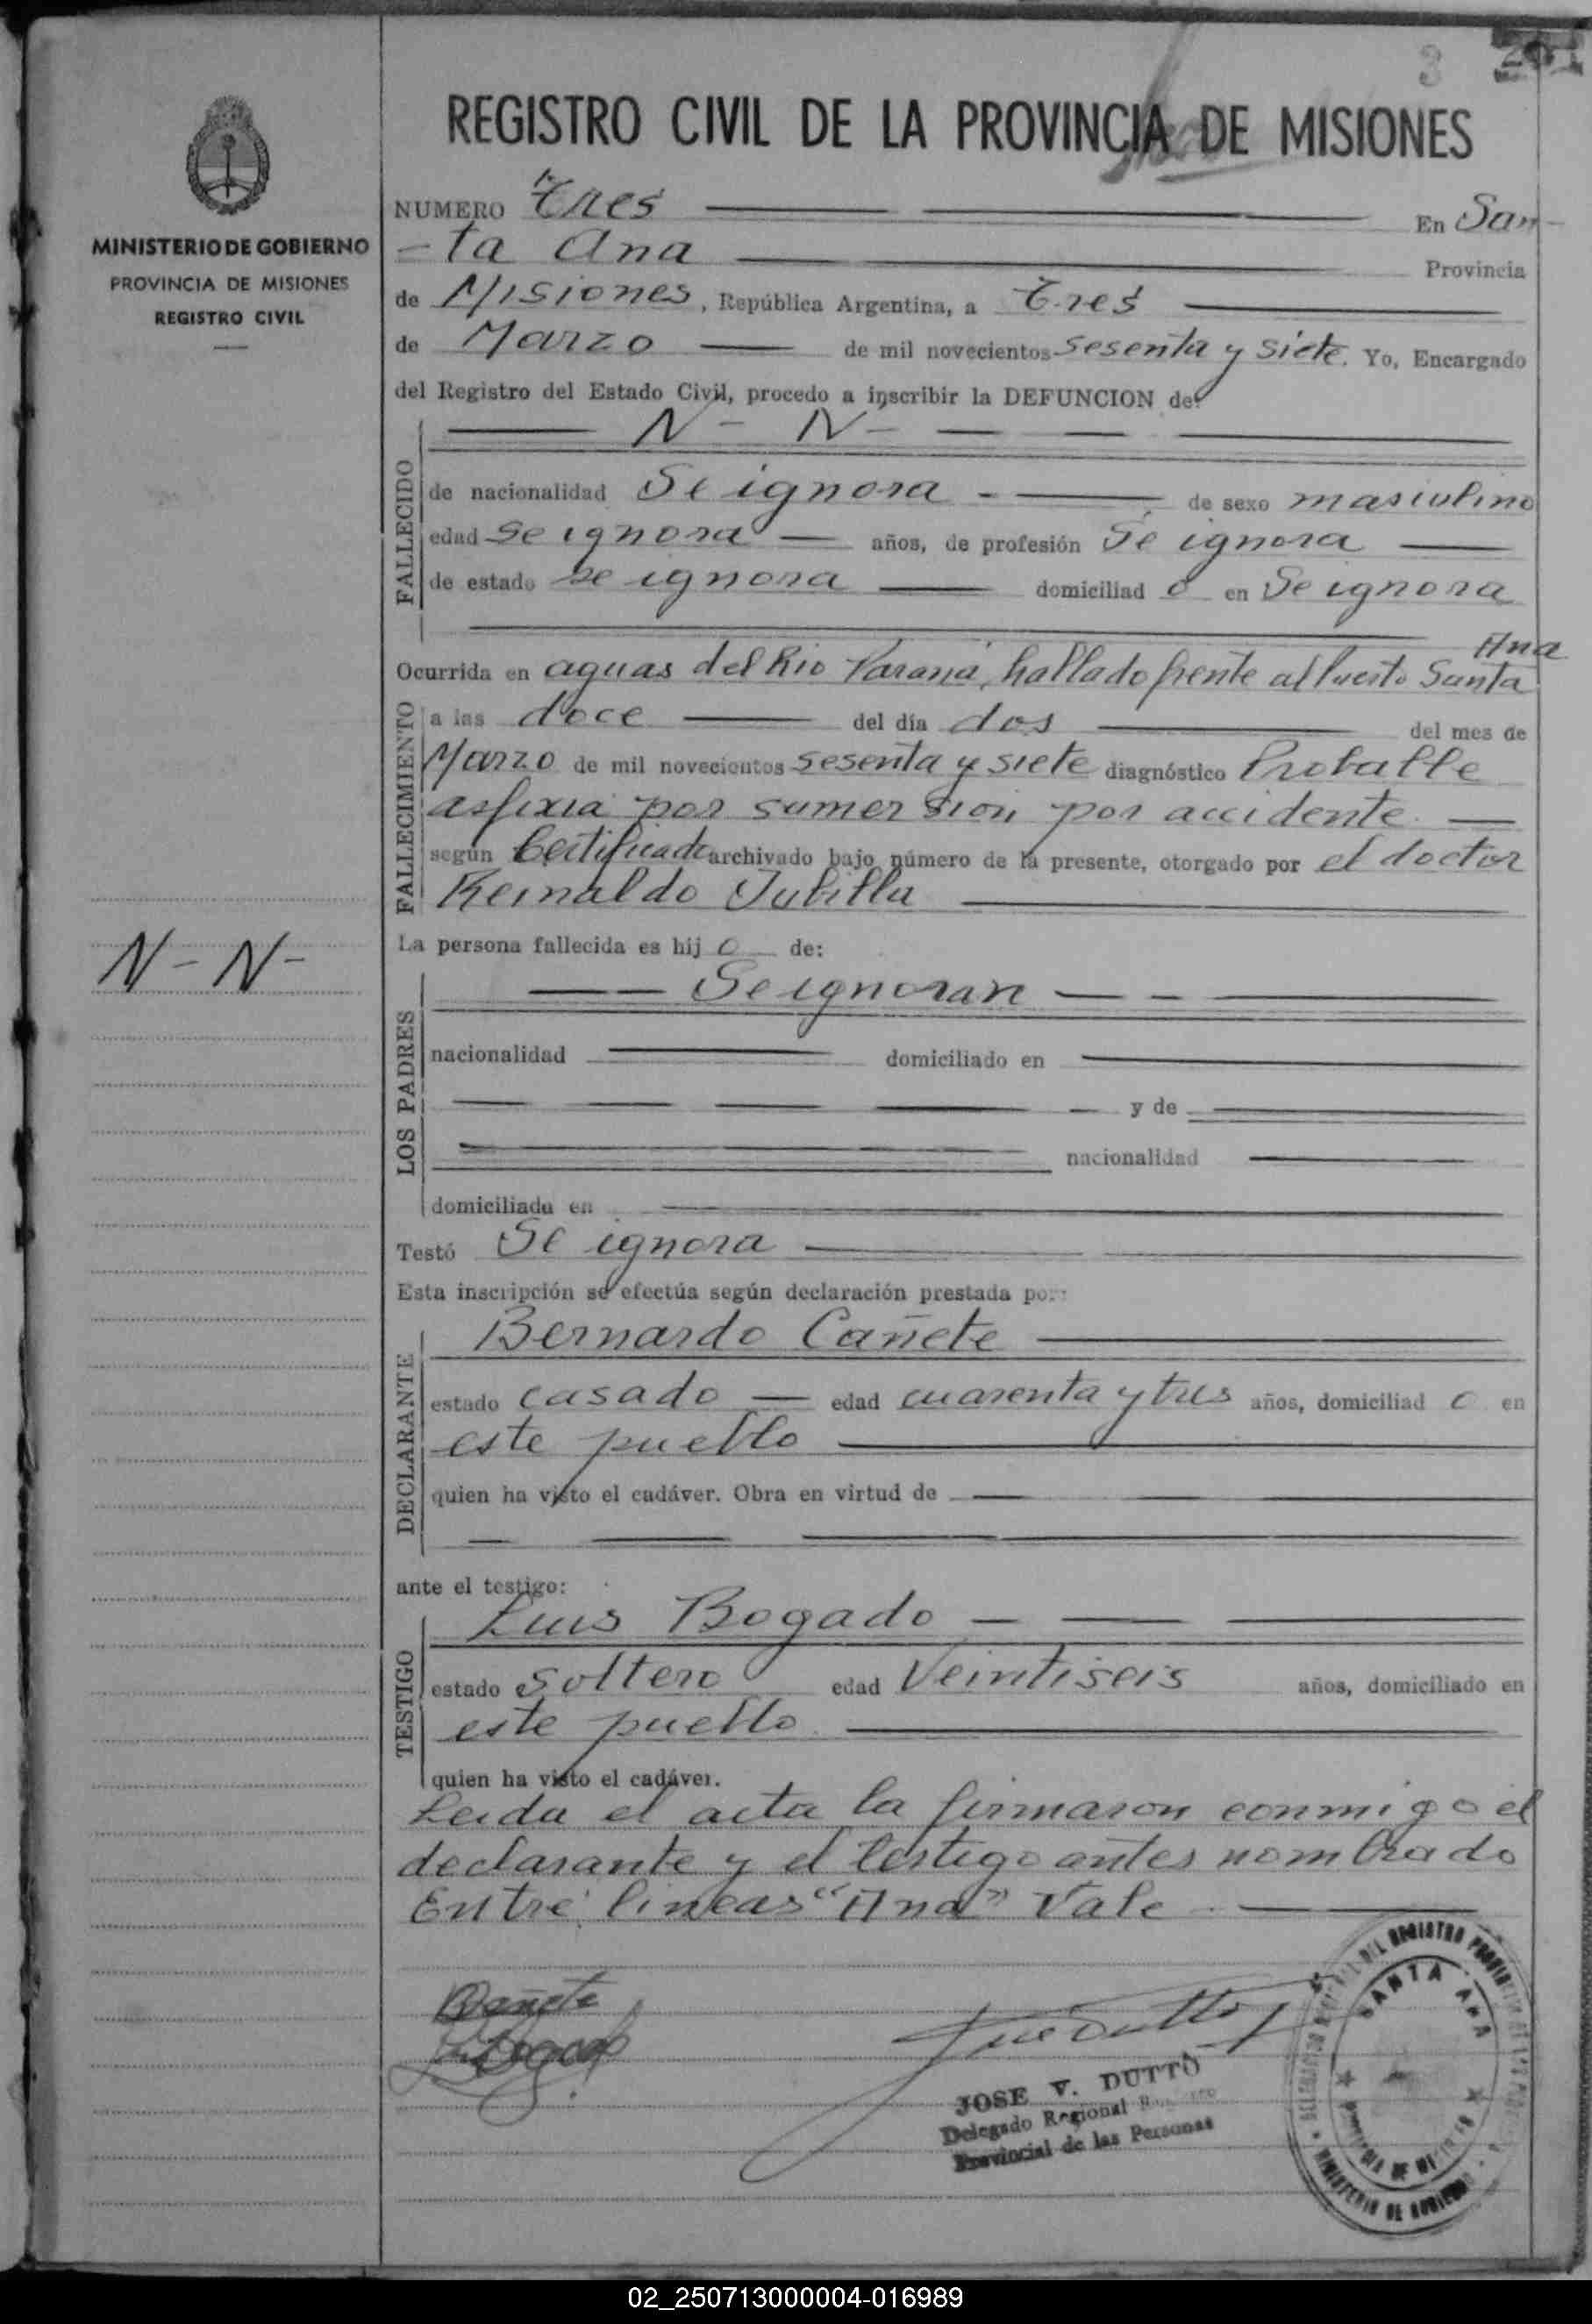 3
REGISTRO CIVIL DE LA PROVINCIA DE MISIONES
MINISTERIO DE GOBIERNO
PROVINCIA DE MISIONES
REGISTRO CIVIL
NUMERO Tres En San-
-ta Ana Provincia
de Misiones, República Argentina, a Tres
de Marzo de mil novecientos sesenta y siete. Yo, Encargado
del Registro del Estado Civil, procedo a inscribir la DEFUNCION de:
N- N-
FALLECIDO
de nacionalidad Se ignora - de sexo masculino
edad se ignora años, de profesión Se ignora
de estado se ignora domiciliad o en Se ignora
Ana
Ocurrida en aguas del Rio Paraná, hallado frente al Puerto Santa
FALLECIMIENTO
a las doce del día dos del mes de
Marzo de mil novecientos sesenta y siete diagnóstico Probable
asfixia por sumersión por accidente.
según Certificado archivado bajo número de la presente, otorgado por el doctor
Reinaldo Jubilla
N-N-
La persona fallecida es hij o de:
LOS PADRES
Se ignoran
nacionalidad domiciliado en
y de
nacionalidad
domiciliada en
Testó Se ignora
Esta inscripción se efectúa según declaración prestada por:
DECLARANTE
Bernardo Cañete
estado casado edad cuarenta y tres años, domiciliad o en
este pueblo
quien ha visto el cadáver. Obra en virtud de
ante el testigo:
TESTIGO
Luis Bogado
estado soltero edad Veintiseis años, domiciliado en
este pueblo
quien ha visto el cadáver.
Leida el acta la firmaron conmigo el
declarante y el testigo antes nombrado
Entre lineas "Ana" Vale
BCañete
JOSE V. DUTTO
Delegado Regional
Provincial de las Personas
SANTA ANA
MINISTERIO DE GOBIERNO
02_250713000004-016989